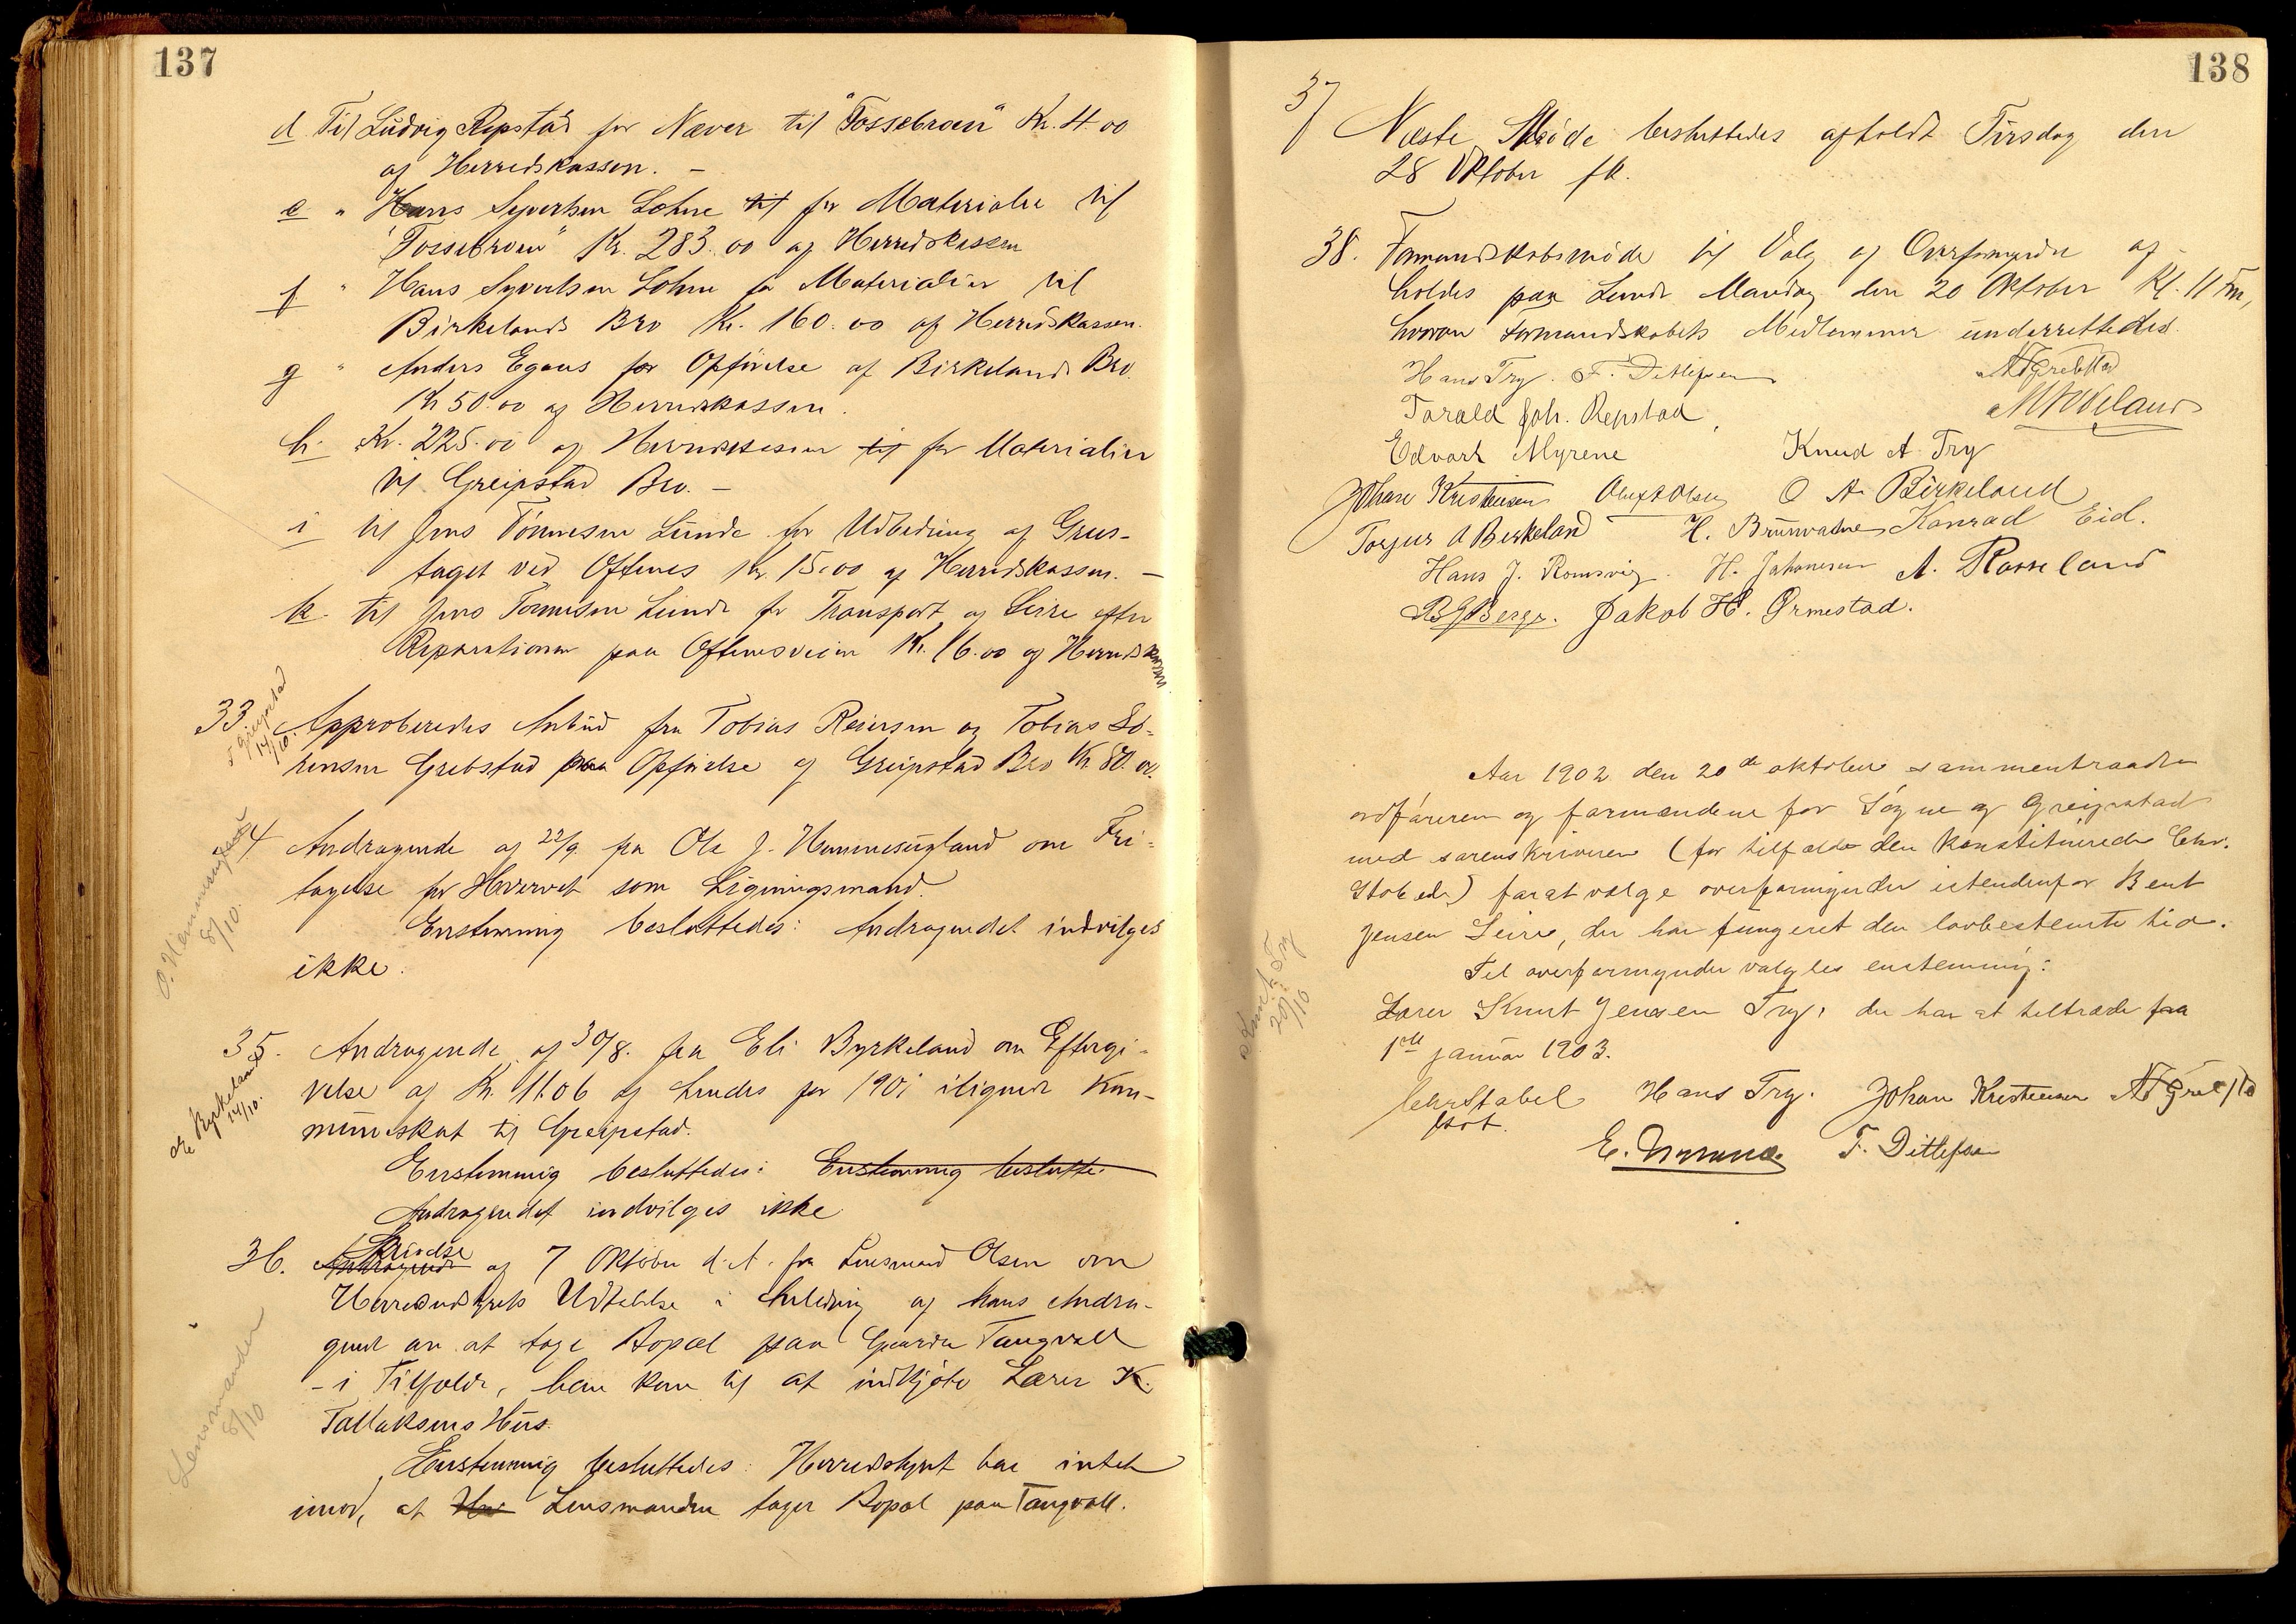 137
d Til Ludvig Repstad for Næver til "Fossebroen" Kr. 4.00
af Herredskassen. -
e " Hans Syvertsen Lohne til for Materialer til
"Fossebroen" Kr. 283.00 af Herredskassen
f " Hans Syvertsen Lohne for Materialier til
Birkelands Bro Kr. 160.00 af Herredskassen.
g " Anders Egaas for Opførelse af Birkelands Bro.
Kr 50.00 af Herredskassen.
h. Kr. 225.00 af Herredskassen til for Materialier
til Greipstad Bro. -
i til Jens Tønnesen Lunde for Udbedring af Grus-
taget ved Oftenes Kr. 15.00 af Herredskassen. -
k. til Jens Tønnesen Lunde for Transport af Leire efter
Reparationen paa Oftenesveien Kr. 16.00 af Herredskassen
33. Approberedes Anbud fra Tobias Reiersen og Tobias Sø-
Greipstad
14/10.
rensen Grebstad paa Opførelse af Greipstad Bro Kr. 80.00.
34 Andragende af 22/9 fra Ole J. Hemmesugland om Fri-
tagelse for Hvervet som Ligningsmand.
O. Hemmingsland
8/10.
Enstemmig besluttedes: Andragendet indvilges
ikke.
35. Andragende af 30/8. fra Eli Byrkeland om Eftergi-
velse af Kr. 11.06 af hendes for 1901 ilignede Kom-
Byrkeland
14/10.
muneskat til Greipstad.
Enstemmig besluttedes: Enstemmig beslutte
Andragendet indvilges ikke
Skrivelse
36. Andragende af 7 Oktober d. A. fra Lensmand Olsen om
Herredsstyrets Udtalelse i Anledning af hans Andra-
gende om at tage Bopæl paa Gaarden Tangvall
- i Tilfælde, han kom til at indkjøbe Lærer K.
Lensmanden
8/10
Tallaksens Hus.
Enstemmig besluttedes: Herredsstyret har intet
imod, at Her Lensmanden tager Bopæl paa Tangvall.
138
37 Næste Møde besluttedes afholdt Tirsdag den
28 Oktober fk.
38. Formandskabsmøde til Valg af Overformynder af-
holdes paa Lunde Mandag den 20 Oktober Kl. 11 Fm,
hvorom Formandskabets Medlemmer underrettedes.
Hans Try. F. Ditlefsen
Tarald Joh. Repstad
Edvart Myrene Knud A. Try
Johan Kristensen Olaf Olsen O A Birkeland
Torjus A Birkeland H. Brunvatne Konrad Eid.
Hans J. Romsvig. H. Johannesen A. Rosseland
Berge. Jakob H. Ormestad.
Aar 1902 den 20de oktober sammentraadte
ordføreren og formændene for Søgne og Greipstad
med sorenskriveren (for tilfældet den konstituerede Chr.
Stabel) forat vælge overformynder istedenfor Bent
Jensen Leire, der har fungeret den lovbestemte tid.
Til overformynder valgtes enstemmig:
Lærer Knut Jensen Try, der har at tiltræde fra
Knut Try
20/10
1ste januar 1903.
Chr Stabel Hans Try. Johan Kristensen
kst.
F. Ditlefsen